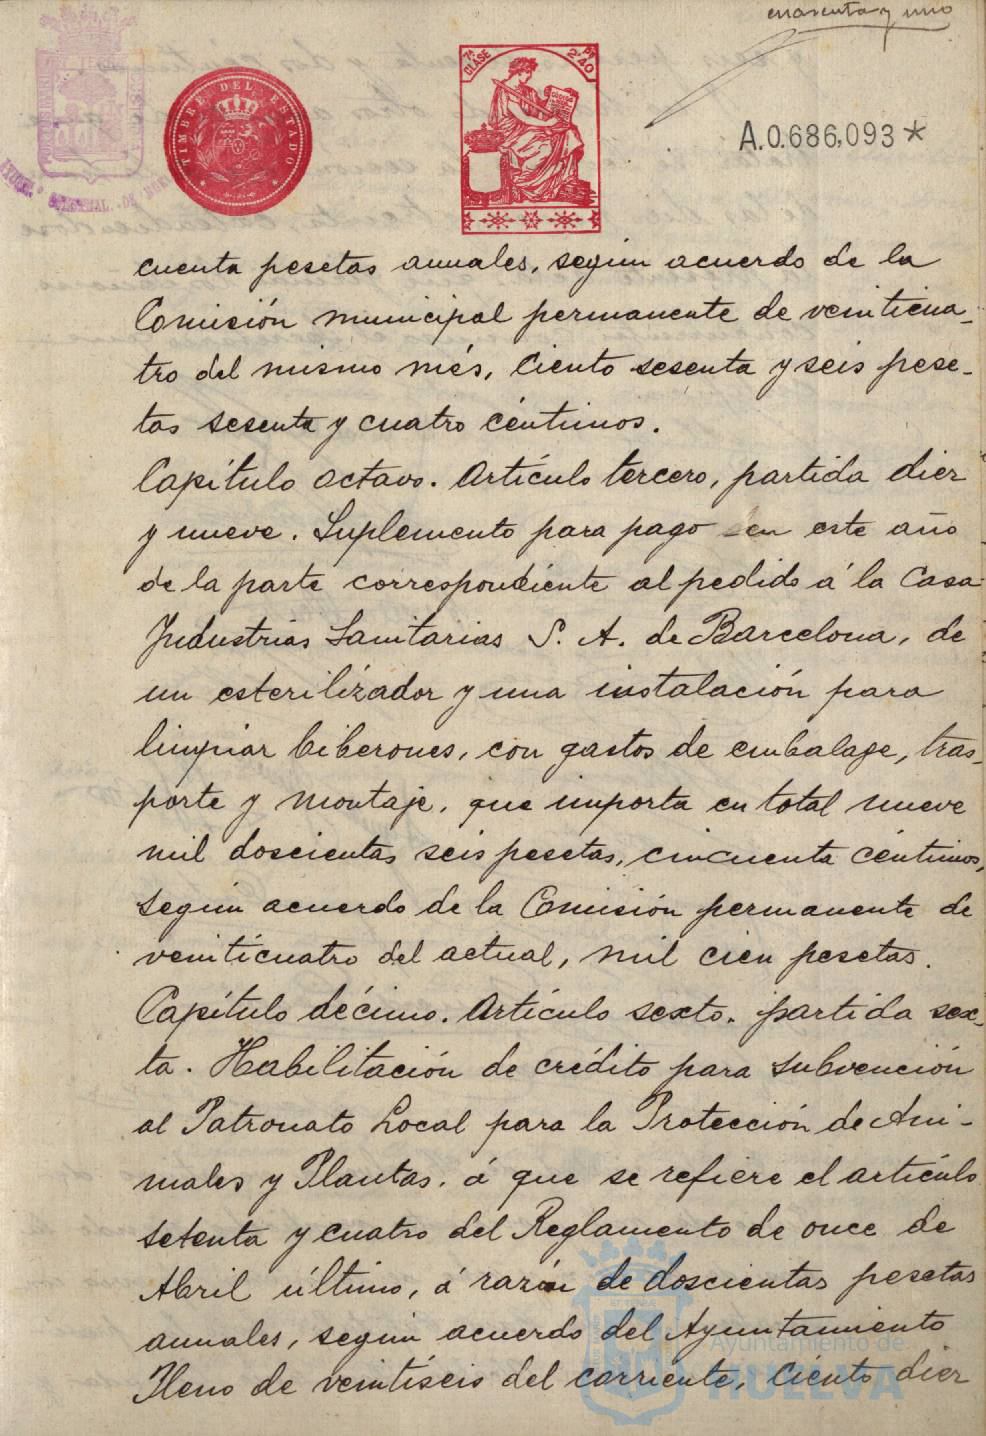 cuarenta y uno
TIMBRE DEL ESTADO
7ª CLASE
2'40 PTS
A.0.686,093*
cuenta pesetas anuales, según acuerdo de la
Comisión municipal permanente de veinticua-
tro del mismo més, Ciento sesenta y seis pese-
tas sesenta y cuatro céntimos.
Capítulo octavo. Artículo tercero, partida diez
y nueve. Suplemento para pago en este año
de la parte correspondiente al pedido á la Casa
Industrias Sanitarias S. A. de Barcelona, de
un esterilizador y una instalación para
limpiar biberones, con gastos de embalage, tras-
porte y montaje, que importa en total nueve
mil doscientas seis pesetas, cincuenta céntimos,
según acuerdo de la Comisión permanente de
veinticuatro del actual, mil cien pesetas.
Capítulo décimo. Artículo sexto. partida sex-
ta. Habilitación de crédito para subvención
al Patronato Local para la Protección de Ani-
males y Plantas. á que se refiere el artículo
setenta y cuatro del Reglamento de once de
Abril último, á razón de doscientas pesetas
anuales, según acuerdo del Ayuntamiento
Pleno de veintiseis del corriente, Ciento diez
Ayuntamiento de
HUELVA